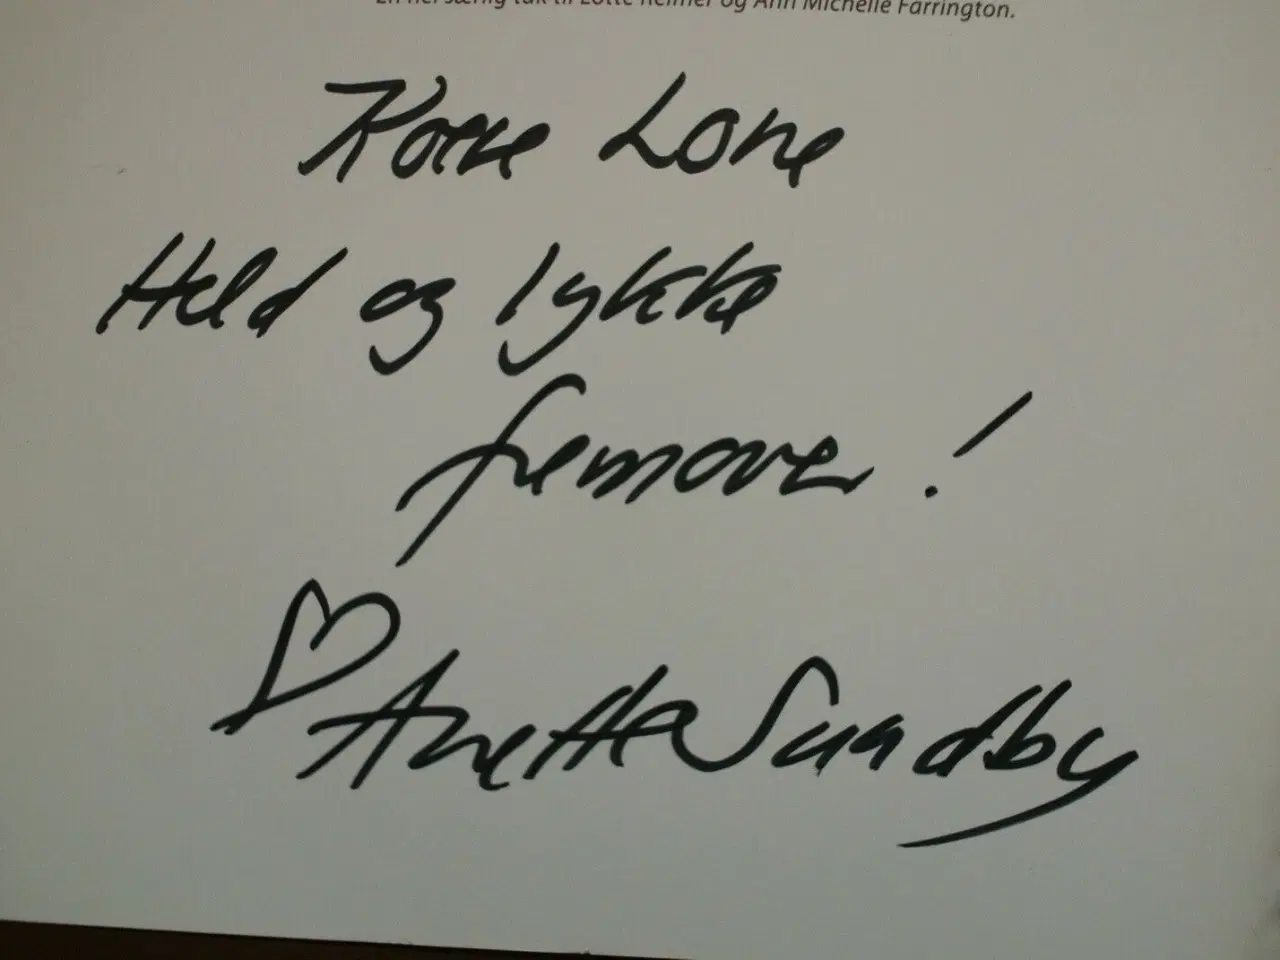 En hel særlig tak til Lotte Heimer og Ann Michelle Farrington.
Kære Lone
Held og lykke
fremover!
♡ Anette Sundby